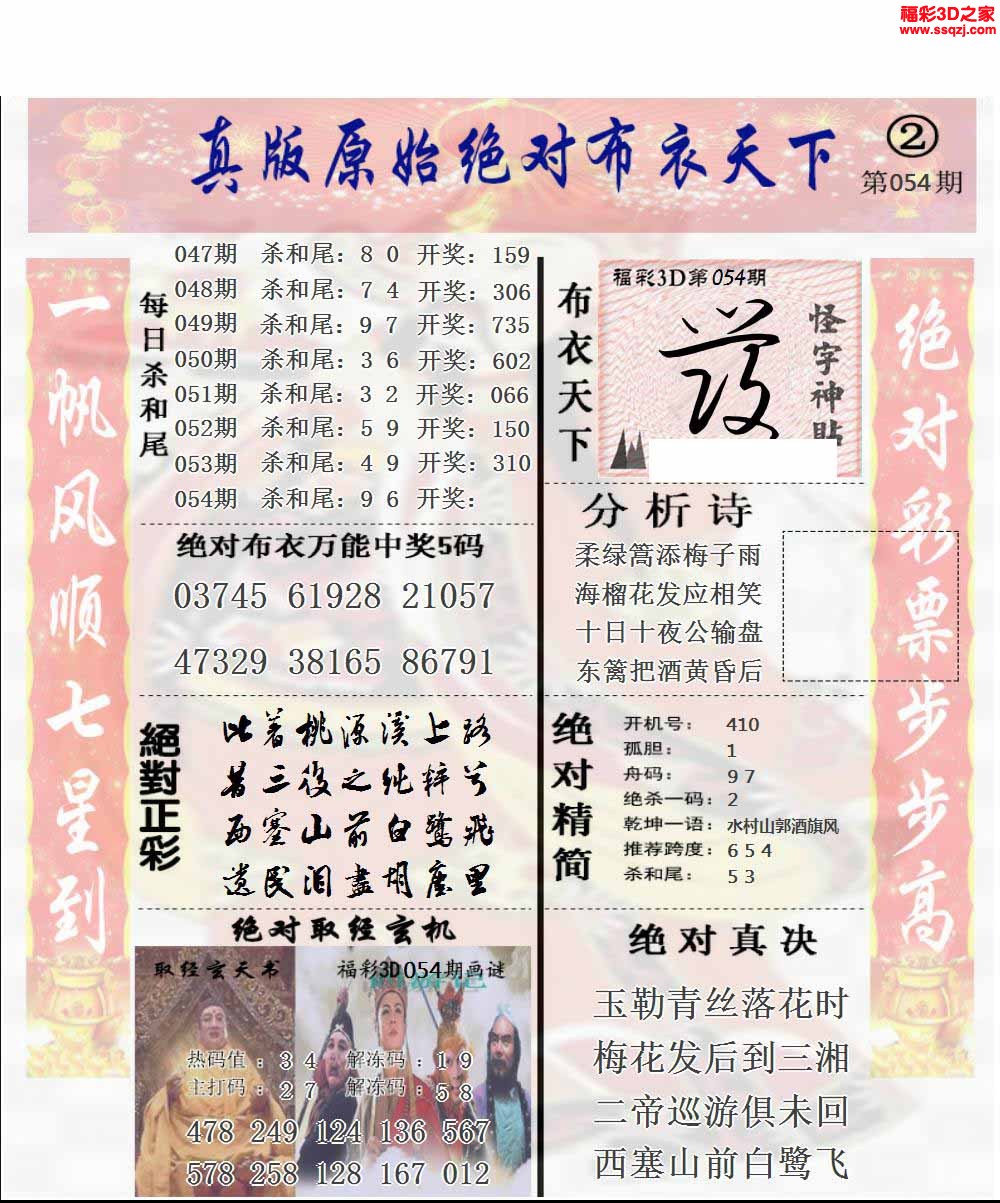 福彩3D之家
www.ssqzj.com
真版原始绝对布衣天下
②
第054期
一帆风顺七星到
每日杀和尾
047期 杀和尾：8 0 开奖：159
048期 杀和尾：7 4 开奖：306
049期 杀和尾：9 7 开奖：735
050期 杀和尾：3 6 开奖：602
051期 杀和尾：3 2 开奖：066
052期 杀和尾：5 9 开奖：150
053期 杀和尾：4 9 开奖：310
054期 杀和尾：9 6 开奖：
绝对布衣万能中奖5码
03745 61928 21057
47329 38165 86791
絕對正彩
此著桃源溪上路
昔三後之纯粹兮
西塞山前白鹭飛
遺民泪盡胡塵里
绝对取经玄机
取经玄天书
福彩3D054期画谜
热码值：3 4 解冻码：1 9
主打码：2 7 解冻码：5 8
478 249 124 136 567
578 258 128 167 012
布衣天下
福彩3D第054期
怪字神贴
分析诗
柔绿篙添梅子雨
海榴花发应相笑
十日十夜公输盘
东篱把酒黄昏后
绝对精简
开机号： 410
孤胆： 1
舟码： 9 7
绝杀一码： 2
乾坤一语： 水村山郭酒旗风
推荐跨度： 6 5 4
杀和尾： 5 3
绝对真决
玉勒青丝落花时
梅花发后到三湘
二帝巡游俱未回
西塞山前白鹭飞
绝对彩票步步高